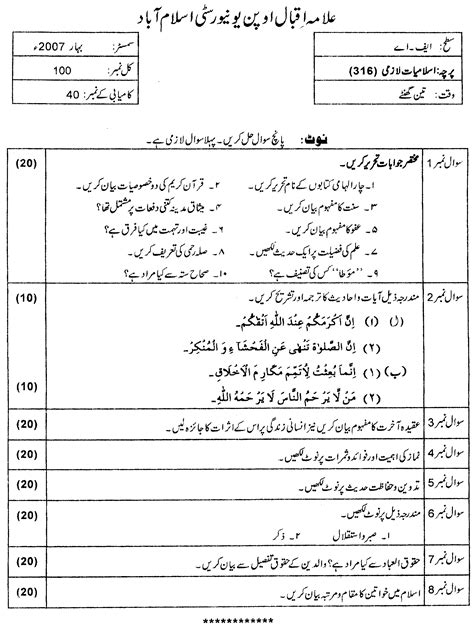 علامہ اقبال اوپن یونیورسٹی اسلام آباد
سطح: ایف۔اے
سمسٹر: بہار 2007ء
پرچہ: اسلامیات لازمی (316)
کل نمبر: 100
وقت: تین گھنٹے
کامیابی کے نمبر: 40
نوٹ: پانچ سوال حل کریں۔ پہلا سوال لازمی ہے۔
سوال نمبر 1 مختصر جوابات تحریر کریں۔ (20)
۱۔ چار الہامی کتابوں کے نام تحریر کریں۔ ۲۔ قرآن کریم کی دو خصوصیات بیان کریں۔
۳۔ سنت کا مفہوم بیان کریں۔ ۴۔ میثاق مدینہ کتنی دفعات پر مشتمل تھا؟
۵۔ عفو کا مفہوم بیان کریں۔ ۶۔ غیبت اور تہمت میں کیا فرق ہے؟
۷۔ علم کی فضیلت پر ایک حدیث لکھیں۔ ۸۔ صلہ رحمی کی تعریف کریں۔
۹۔ "مؤطا" کس کی تصنیف ہے؟ ۱۰۔ صحاح ستہ سے کیا مراد ہے؟
سوال نمبر 2 مندرجہ ذیل آیات و احادیث کا ترجمہ اور تشریح کریں۔ (10)
(ل) (۱) اِنَّ اَکْرَمَکُمْ عِنْدَ اللّٰهِ اَتْقٰکُمْ۔
(۲) اِنَّ الصَّلٰوۃَ تَنْهٰی عَنِ الْفَحْشَاءِ وَ الْمُنْکَرِ۔
(ب) (۱) اِنَّمَا بُعِثْتُ لِاُتَمِّمَ مَکَارِمَ الْاَخْلَاقِ۔
(۲) مَنْ لَّا یَرْحَمُ النَّاسَ لَا یَرْحَمُهُ اللّٰهُ۔ (10)
سوال نمبر 3 عقیدہ آخرت کا مفہوم بیان کریں نیز انسانی زندگی پر اس کے اثرات کا جائزہ لیں۔ (20)
سوال نمبر 4 نماز کی اہمیت اور فوائد و ثمرات پر نوٹ لکھیں۔ (20)
سوال نمبر 5 تدوین و حفاظت حدیث پر نوٹ لکھیں۔ (20)
سوال نمبر 6 مندرجہ ذیل پر نوٹ لکھیں۔ (20)
۱۔ صبر و استقلال ۲۔ ذکر
سوال نمبر 7 حقوق العباد سے کیا مراد ہے؟ والدین کے حقوق تفصیل سے بیان کریں۔ (20)
سوال نمبر 8 اسلام میں خواتین کا مقام و مرتبہ بیان کریں۔ (20)
************